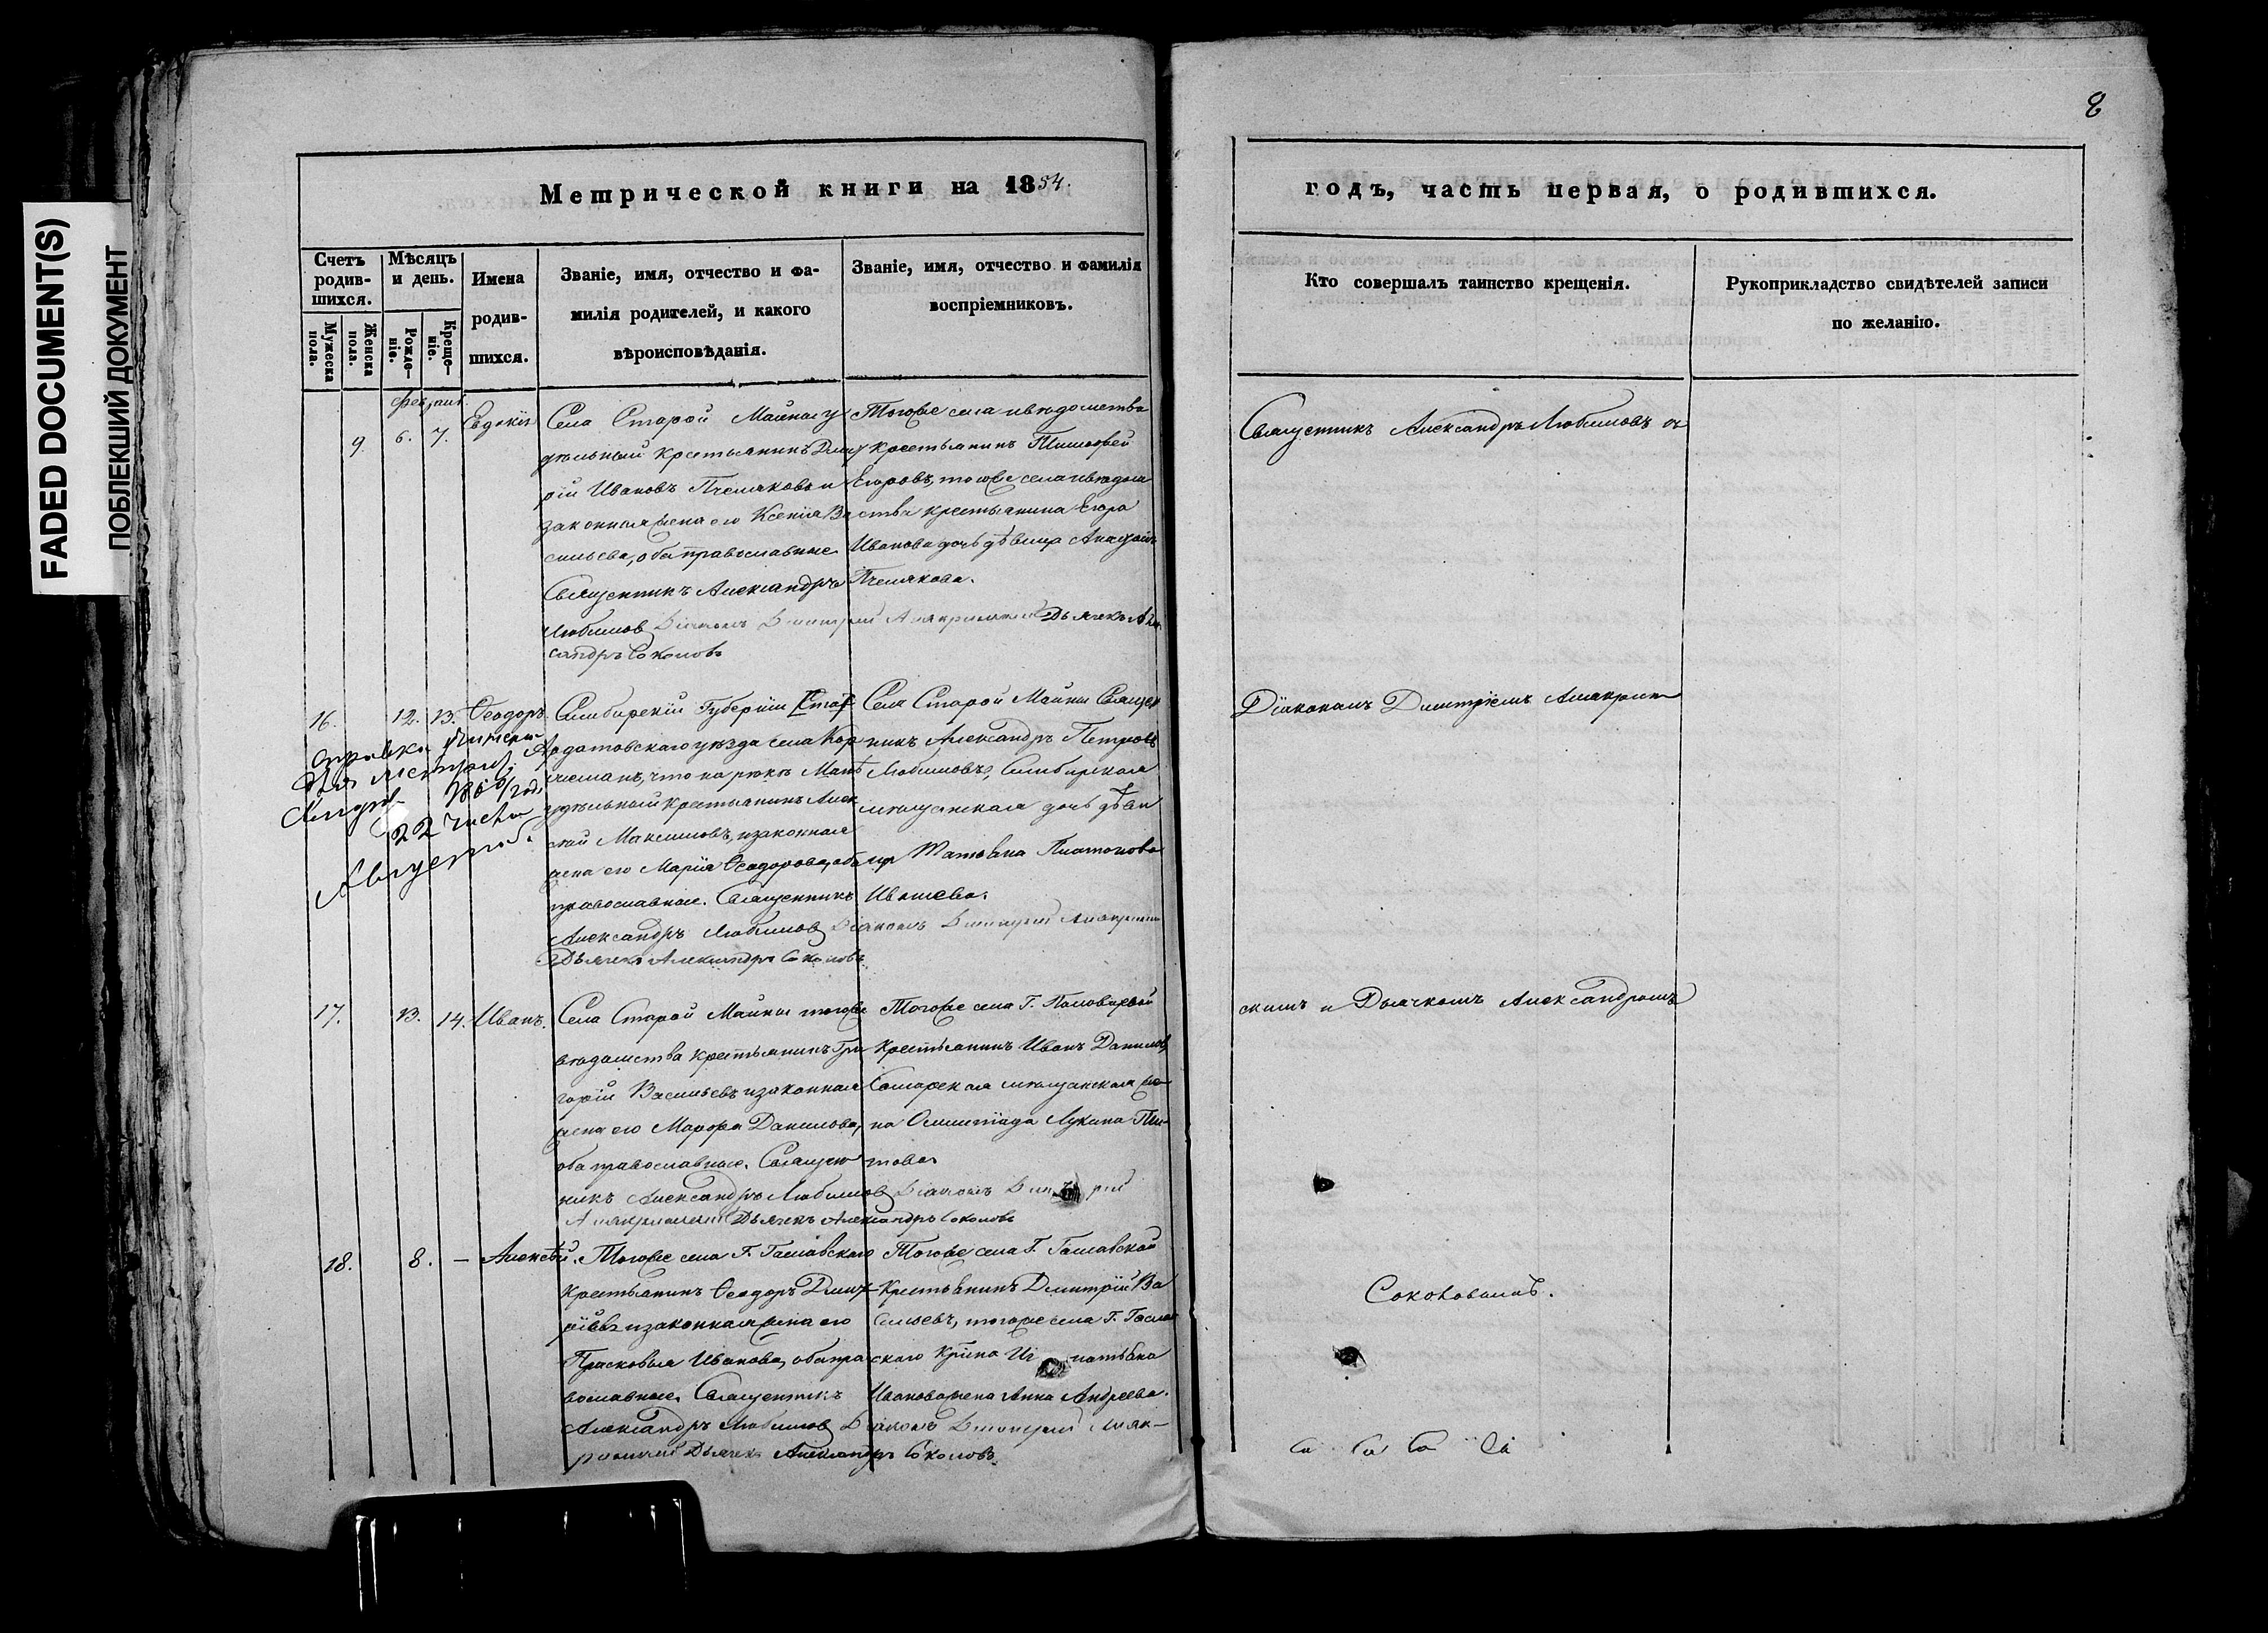 FADED DOCUMENT(S)
ПОБЛЕКШИЙ ДОКУМЕНТ
8
Метрической книги на 1854.
годъ, часть первая, о родившихся.
Счетъ родив-шихся.
Мужеска пола.
Женска пола.
Мѣсяцъ и день.
Рожде-ніе.
Креще-ніе.
Имена
родив-
шихся.
Званіе, имя, отчество и фа-
милія родителей, и какого
вѣроисповѣданія.
Званіе, имя, отчество и фамилія
воспріемниковъ.
Кто совершалъ таинство крещенія.
Рукоприкладство свидѣтелей записи
по желанію.
9. 6. 7. Евдокія
Села Старой Майны у
дѣльный крестьянинъ Дмит
рій Ивановъ Пчеляковъ и
законная жена его Ксенія Ва
сильева, оба православные
Священникъ Александръ
Любимов Діаконъ Димитрій Дьячекъ Алек
сандръ Соколовъ
Тогоже села и вѣдомства
крестьянинъ Тимофей
Егоровъ, тогоже села и вѣдом
ства крестьянина Егора
Иванова дочь дѣвица
Пчелякова.
Священникъ Александръ Любимовъ съ
16. 12. 13. Ѳеодоръ.
Справка
22 числа
Августа
Симбирскій Губерніи
Ардатовскаго уѣзда села Кор
что на рѣкѣ
удѣльный крестьянинъ Алек
сѣй Максимовъ, и законная
жена его Марія Ѳеодорова, оба
православные. Священникъ
Александръ Любимов Діаконъ Димитрій
Дьячекъ Александръ Соколовъ
Села Старой Майны Священ
никъ Александръ Петровъ
Любимовъ, Симбирская
мѣщанская дочь дѣви
ца Татьяна Платонова
Ивашева.
Діакономъ Димитріемъ Амакрин
17. 13. 14. Иванъ.
Села Старой Майны тогоже
вѣдомства крестьянинъ Гри
горій Васильевъ и законная
жена его Марфа Данилова,
оба православные. Священ
никъ Александръ Любимов Діаконъ
Дьячекъ Александръ Соколовъ
Тогоже села Г.
крестьянинъ Иванъ Данилов
Самарская мѣщанская же
на Олимпіада Лукина
това
скимъ и Дьячкомъ Александромъ
18. 8. — Алексѣй.
Тогоже села Г.
крестьянинъ Ѳеодоръ Дмит
ріевъ и законная жена его
Прасковья Иванова, оба пра
вославные. Священникъ
Александръ Любимов Діаконъ Димитрій
Дьячекъ Александръ Соколовъ.
Тогоже села Г.
крестьянинъ Димитрій Ва
сильевъ, тогоже села Г.
Иванова жена Анна Андреева.
Соколовымъ.